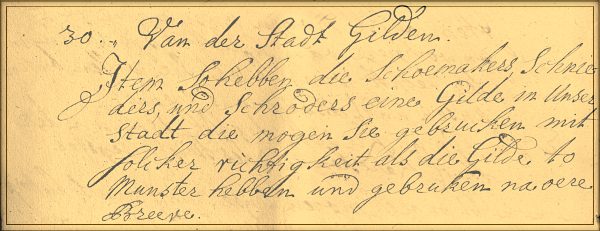 30. „ Van der Stadt Gilden.
Item So hebben die Schoemakers, Schnie
ders, und Schröders eine Gilde in Unser
Stadt die mogen Sie gebrucken mit
solcker richtigkeit als die Gilde to
Munster hebben und gebruken na oere
Breeve.